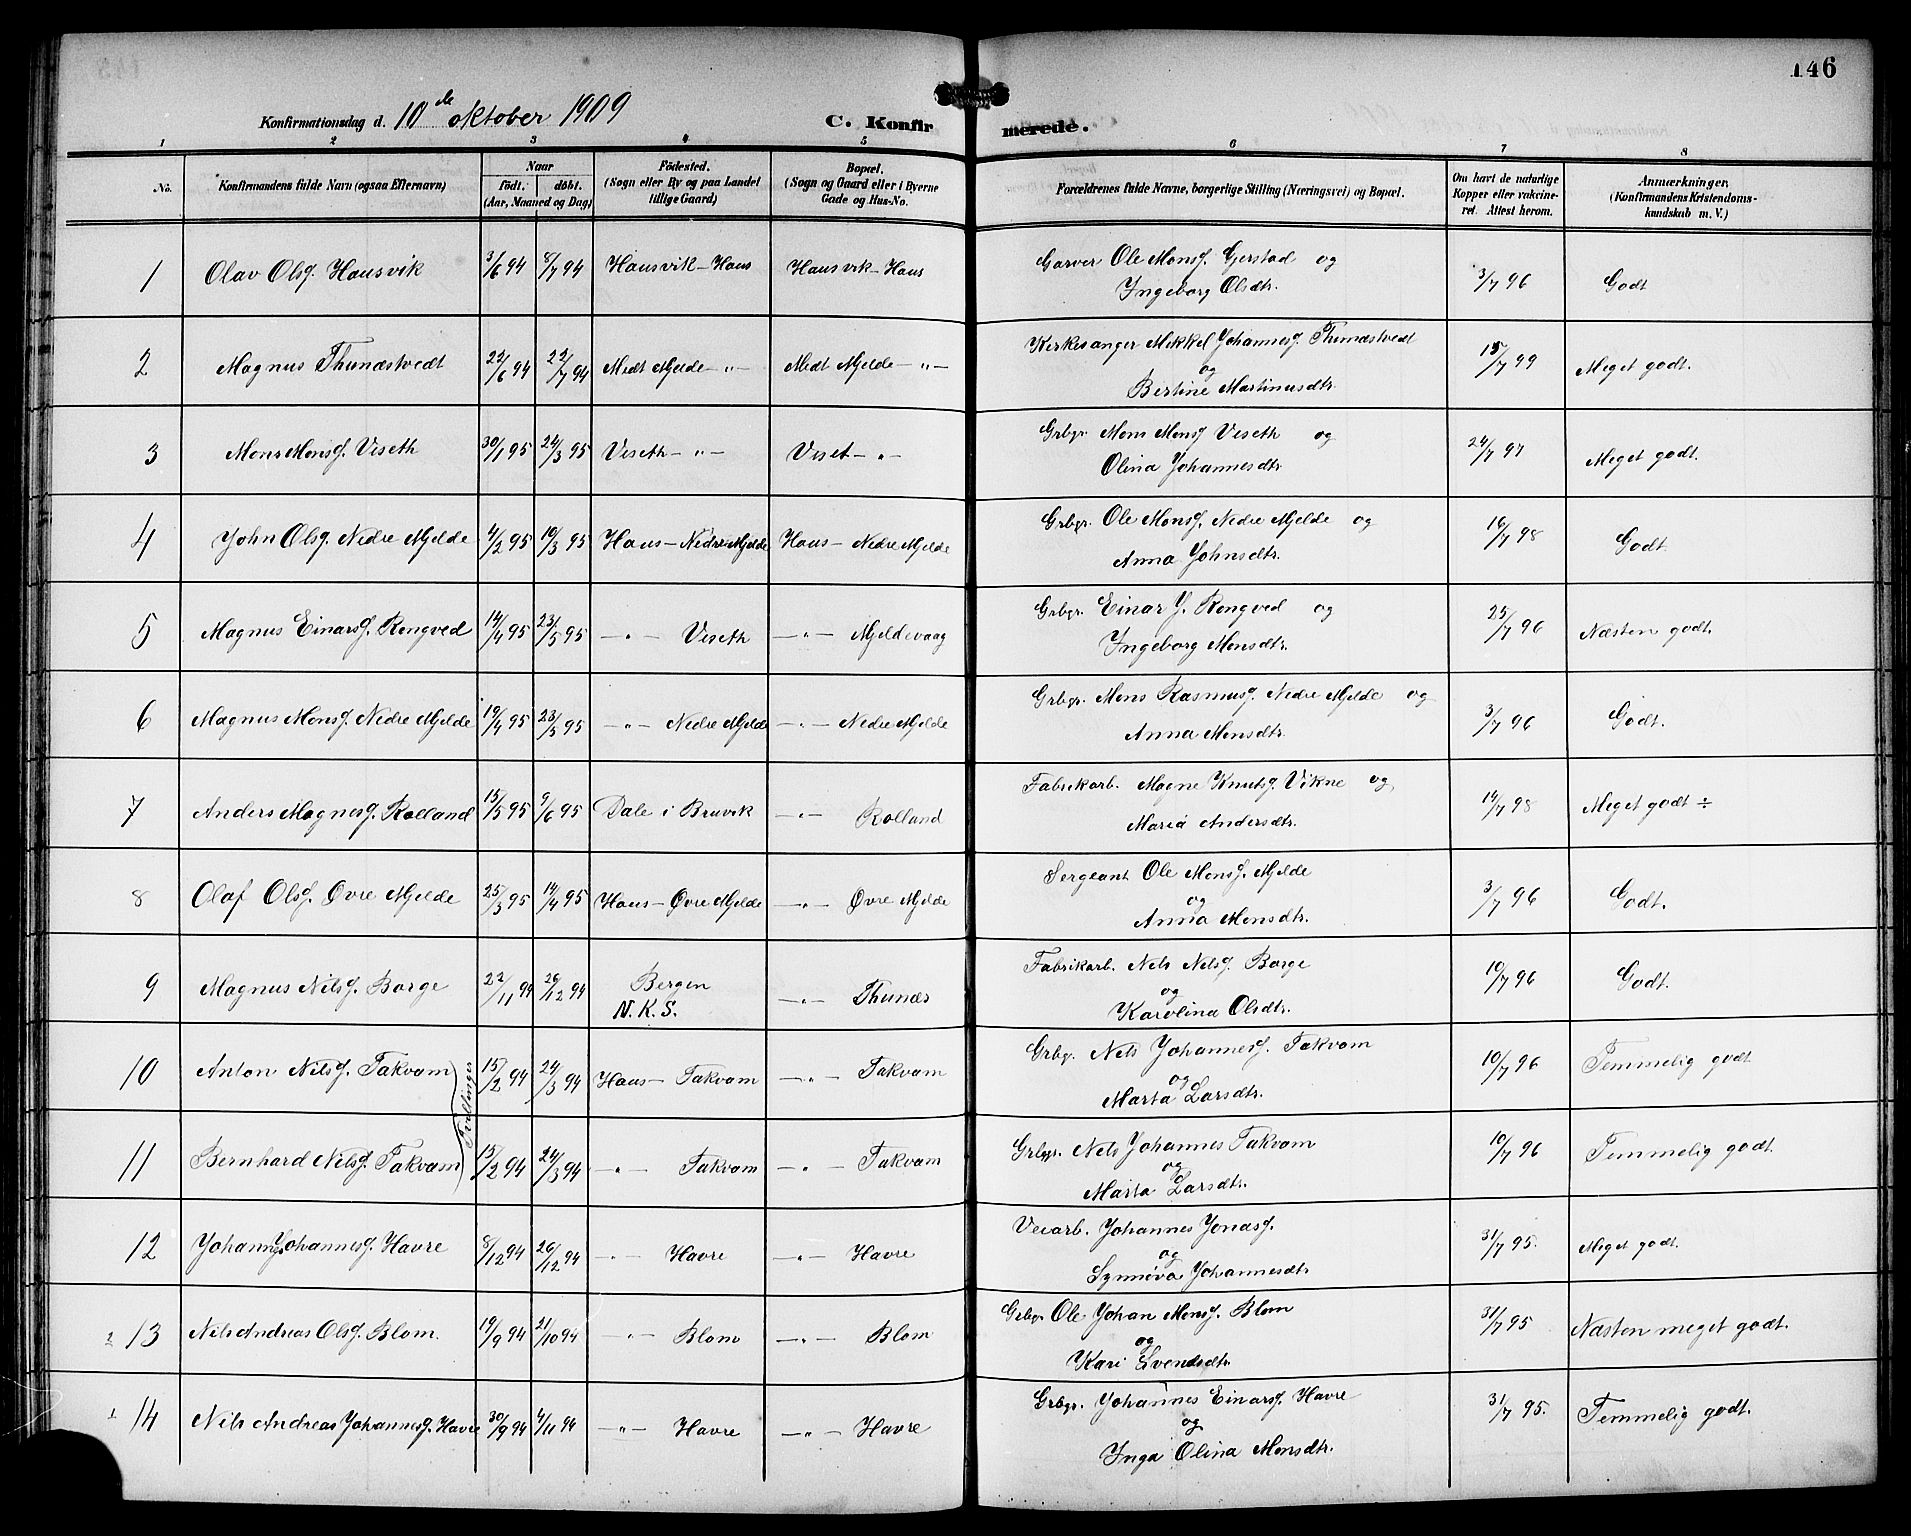 146
Konfirmationsdag d. 10de oktober 1909 C. Konfirmerede.
1 2 3 4 5 6 7 8
No. Konfirmandens fulde Navn (ogsaa Efternavn) Naar født. døbt. (Aar, Maaned og Dag) Födested. (Sogn eller By og paa Landet tillige Gaard) Bopæl. (Sogn og Gaard eller i Byerne Gade og Hus-No. Forældrenes fulde Navne, borgerlige Stilling (Næringsvei) og Bopæl. Om havt de naturlige Kopper eller vakcineret. Attest herom. Anmærkninger. (Konfirmandens Kristendomskundskab m. V.)
1 Olav Olsf. Hausvik 3/6 94 8/7 94 Hausvik - Haus Hausvik - Haus Garver Ole Monsf. Gjerstad og 3/7 96 Godt
Ingeborg Olsdtr.
2 Magnus Thunæstvedt 22/6 94 22/7 94 Midt Mjelde - " - Midt Mjelde - " - Kirkesanger Mikkel Johannesf. Thunæstvedt 15/7 99 Meget godt.
og
Bertine Martinusdtr.
3 Mons Monsf. Viseth 30/1 95 24/3 95 Viseth - " - Viset - " - Grbgr. Mons Monsf. Viseth og 24/7 97 Meget godt.
Olina Johannesdtr.
4 John Olsf. Nedre Mjelde 4/2 95 10/3 95 Haus - Nedre Mjelde Haus - Nedre Mjelde Grbgr. Ole Monsf. Nedre Mjelde og 16/7 98 Godt.
Anna Johnsdtr.
5 Magnus Einarsf. Rongved 14/4 95 23/5 95 - " - Viseth - " - Mjeldevaag Grbgr. Einar J. Rongved og 25/7 96 Næsten godt.
Ingeborg Monsdtr.
6 Magnus Monsf. Nedre Mjelde 19/4 95 23/5 95 - " - Nedre Mjelde - " - Nedre Mjelde Grbgr. Mons Rasmusf. Nedre Mjelde og 3/7 96 Godt.
Anna Monsdtr.
7 Anders Magnesf. Rolland 15/5 95 9/6 95 Dale i Bruvik - " - Rolland Fabrikarb. Magne Knutsf. Vikne og 14/7 98 Meget godt ÷
Maria Andersdtr.
8 Olaf Olsf. Øvre Mjelde 25/3 95 14/4 95 Haus - Øvre Mjelde - " - Øvre Mjelde Sergeant Ole Monsf. Mjelde 3/7 96 Godt.
og
Anna Monsdtr.
9 Magnus Nilsf. Borge 22/11 94 26/12 94 Bergen - " - Thunæs Fabrikarb. Nels Nelsf. Borge 10/7 96 Godt.
N.K.S. og
Karolina Olsdtr.
10 Anton Nilsf. Takvam 15/2 94 24/3 94 Haus - Takvam - " - Takvam Grbgr. Nels Johannesf. Takvam 10/7 96 Temmelig godt
og
Marta Larsdtr.
Tvillinger
11 Bernhard Nilsf. Takvam 15/2 94 24/3 94 - " - Takvam - " - Takvam Grbgr. Nels Johannes Takvam 10/7 96 Temmelig godt.
og
Marta Larsdtr.
12 Johannes Johannesf. Havre 8/12 94 26/12 94 - " - Havre - " - Havre Veiarb. Johannes Jonasf. 31/7 95. Meget godt.
og
Synnøva Johannesdtr.
2 13 Nils Andreas Olsf. Blom. 19/9 94 21/10 94 - " - Blom - " - Blom Grbgr. Ole Johan Monsf. Blom 31/7 95 Næsten meget godt.
og
Kari Svendsdtr.
1 14 Nils Andreas Johannesf. Havre 30/9 94 4/11 94 - " - Havre - " - Havre Grbgr. Johannes Einarsf. Havre 31/7 95. Temmelig godt.
og
Inga Olina Monsdtr.